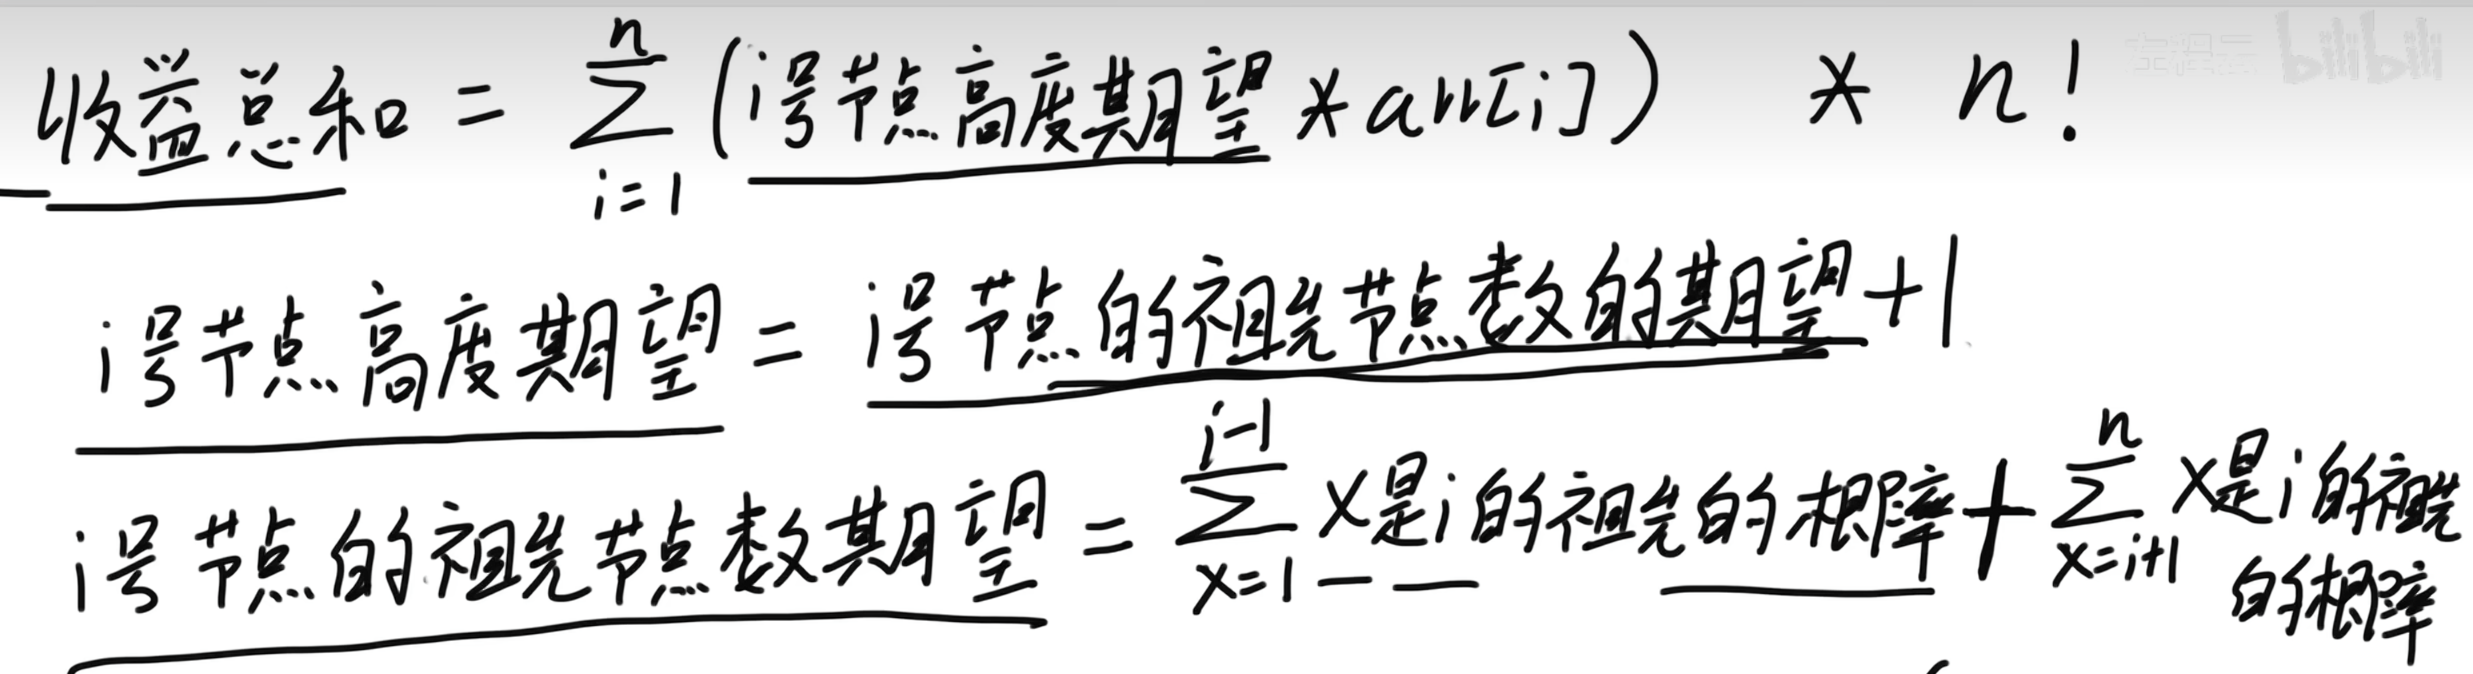 收益总和 = n∑i=1 (i号节点高度期望 * arr[i]) * n! bilibili
i号节点高度期望 = i号节点的祖先节点数的期望+1
i号节点的祖先节点数期望 = i-1∑x=1 x是i的祖先的概率 + n∑x=i+1 x是i的祖先的概率